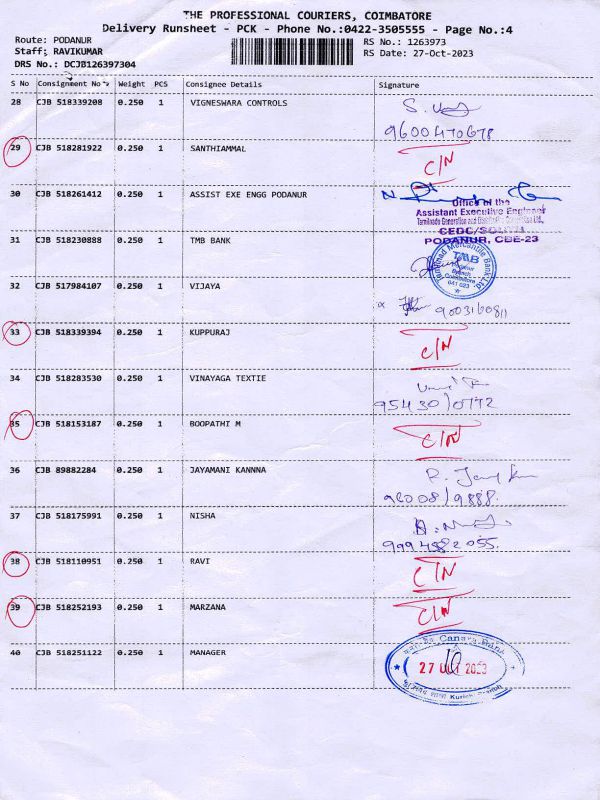 THE PROFESSIONAL COURIERS, COIMBATORE
Delivery Runsheet - PCK - Phone No.:0422-3505555 - Page No.:4
Route: PODANUR
Staff: RAVIKUMAR
DRS No.: DCJB126397304
RS No.: 1263973
RS Date: 27-Oct-2023
S No Consignment No Weight PCS Consignee Details Signature
28 CJB 518339208 0.250 1 VIGNESWARA CONTROLS
9600470678
29 CJB 518281922 0.250 1 SANTHIAMMAL C/N
30 CJB 518261412 0.250 1 ASSIST EXE ENGG PODANUR
Office of the
Assistant Executive Engineer
CEDC/SOUTH
PODANUR, CBE-23
31 CJB 518230888 0.250 1 TMB BANK
Tamilnad Mercantile Bank Ltd.
TMB
Podanur
Branch
Coimbatore
641 023
32 CJB 517984107 0.250 1 VIJAYA
9003160811
33 CJB 518339394 0.250 1 KUPPURAJ C/N
34 CJB 518283530 0.250 1 VINAYAGA TEXTIE
95430/0772
35 CJB 518153187 0.250 1 BOOPATHI M C/N
36 CJB 89882284 0.250 1 JAYAMANI KANNNA
92008/9888
37 CJB 518175991 0.250 1 NISHA
9994882055
38 CJB 518110951 0.250 1 RAVI C/N
39 CJB 518252193 0.250 1 MARZANA C/N
40 CJB 518251122 0.250 1 MANAGER
Canara Bank
27 OCT 2023